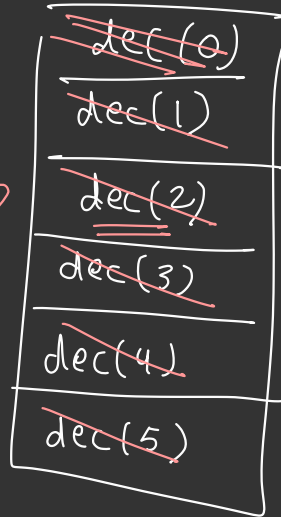 dec(0)
dec(1)
dec(2)
dec(3)
dec(4)
dec(5)